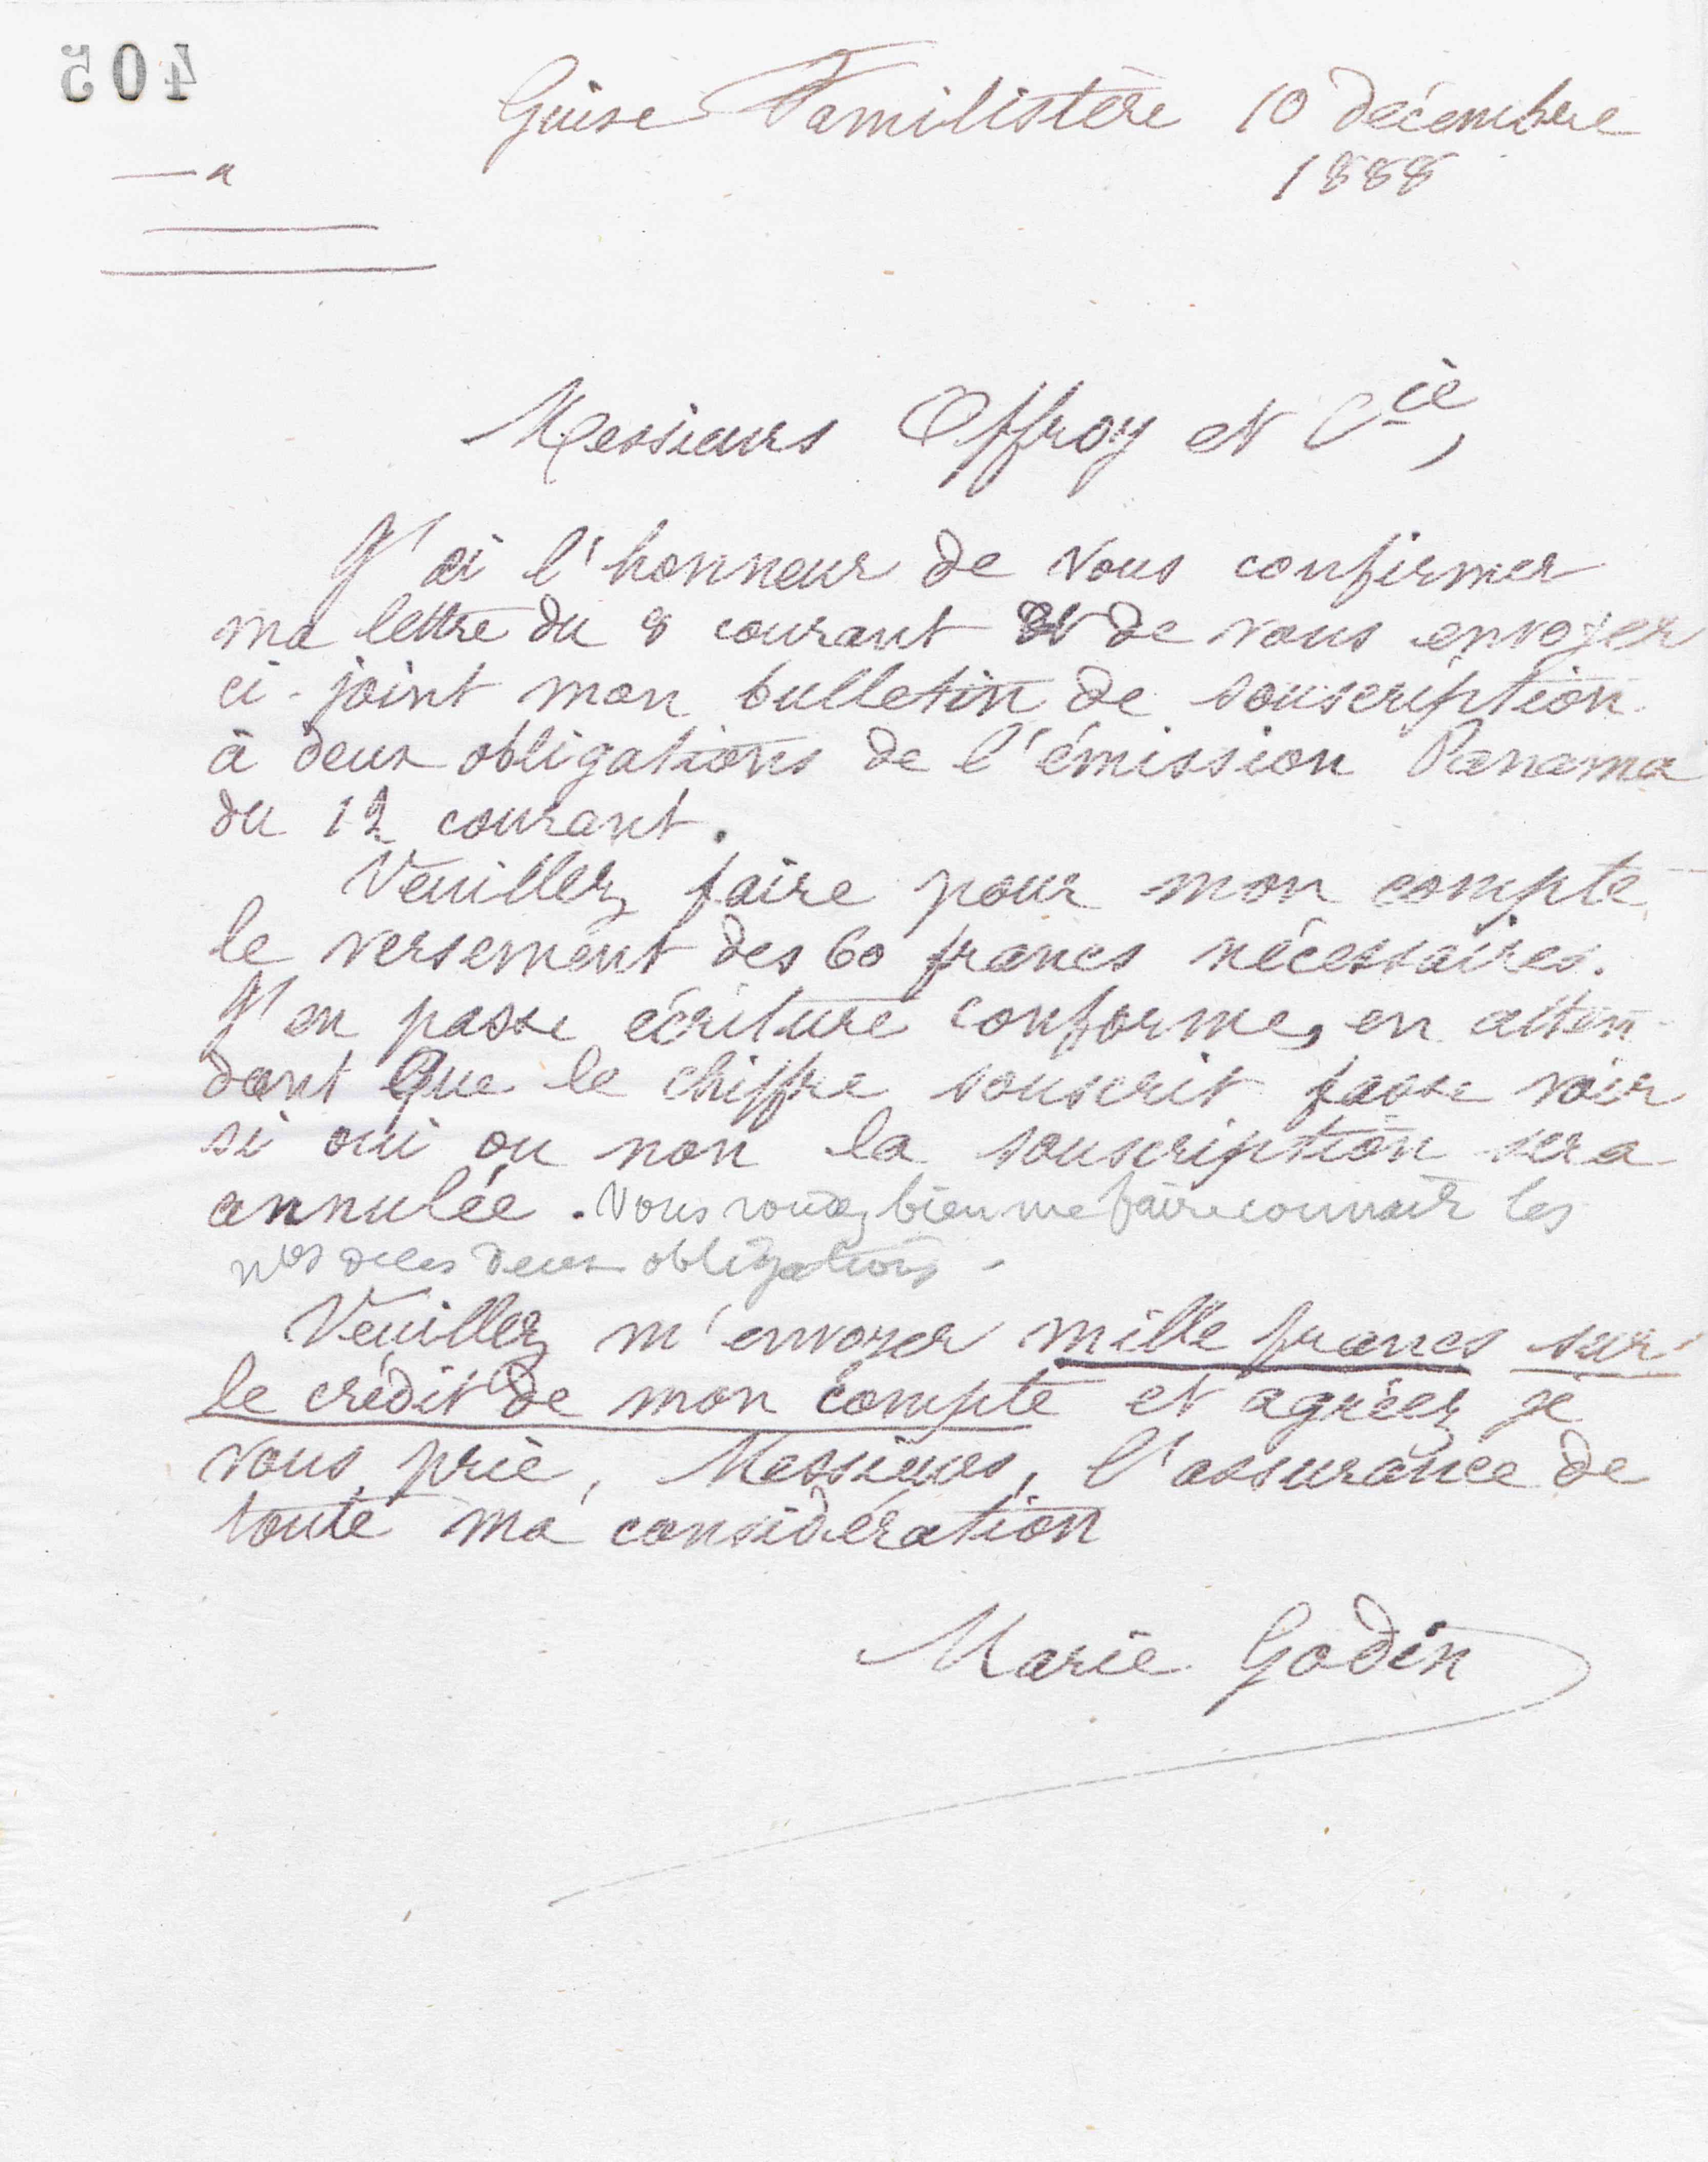 405
Guise Familistère 10 décembre
1888
a
Messieurs Offroy et Cie,
J'ai l'honneur de vous confirmer
ma lettre du 8 courant et de vous envoyer
ci-joint mon bulletin de souscription
à deux obligations de l'émission Panama
du 12 courant.
Veuillez faire pour mon compte
le versement des 60 francs nécessaires.
J'en passe écriture conforme, en atten-
dant que le chiffre souscrit fasse voir
si oui ou non la souscription sera
annulée. Vous voudrez bien me faire connaître les
nos de les deux obligations.
Veuillez m'envoyer mille francs sur
le crédit de mon compte et agréez je
vous prie, Messieurs, l'assurance de
toute ma considération
Marie Godin